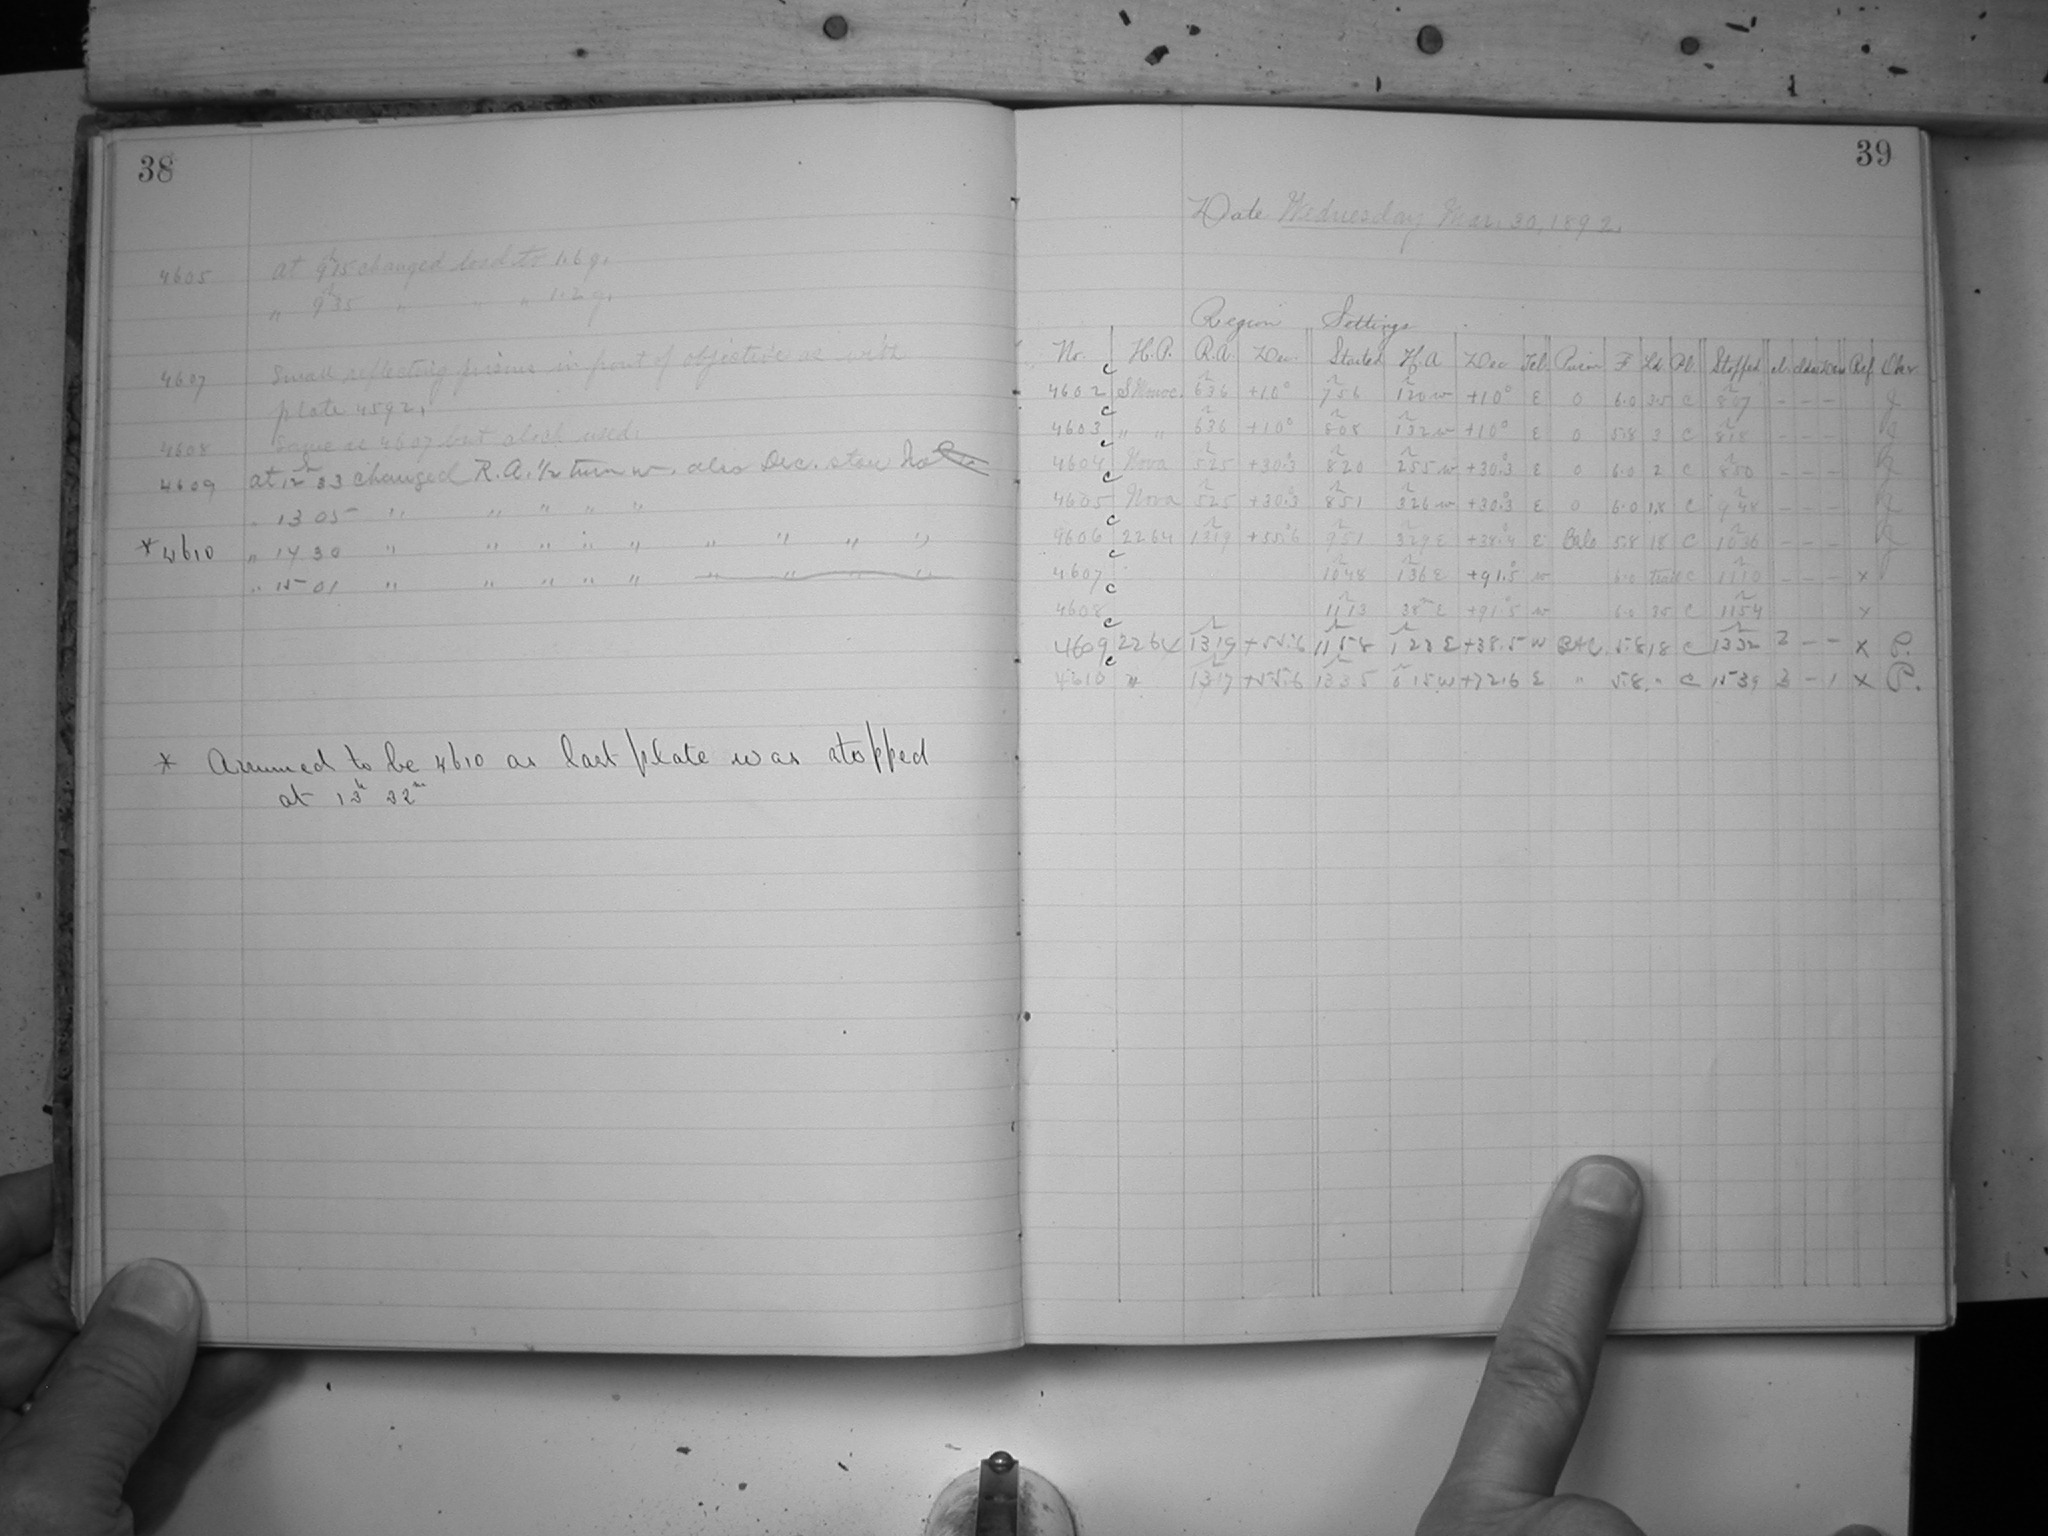 38
4605 at 9h25 changed load to 1.6 g.
" 9h35 " " " 1.2 g.
4607 Small reflecting prisms in front of objective as with
plate 4592.
4608 Same as 4607 but clock used.
4609 at 12h 33 changed R.A. 1/2 turn w. also Dec.
" 13 05 " " " " "
*4610 " 14 30 " " " " " " " " "
" 15 01 " " " " " " " " "
* Assumed to be 4610 as last plate was stopped
at 13h 32m
39
Date Wednesday Mar. 30, 1892.
Region Settings
No. H.P. R.A. Dec. Started H A Dec Tel. F Ld Pl. Stopped Ref Obs.
4602 c 6h36 +10° 7h56 1h20 w +10° E 0 6.0 3.5 C 8h07 - - -
4603 c " " 6h36 +10° 8h08 1h32 w +10° E 0 5.8 3 C 8h18 - - -
4604 c Nova 5h25 +30.°3 8h20 2h55 w +30.°3 E 0 6.0 2 C 8h50 - - -
4605 c Nova 5h25 +30.°3 8h51 3h26 w +30.°3 E 0 6.0 1.8 C 9h48 - - -
4606 c 2264 13h19 +55.°6 9h51 3h29 E +38.°4 E 5.8 18 C 10h36 - - -
4607 c 10h48 1h36 E +91.°5 w 6.0 trail C 11h10 - - - x
4608 c 11h13 38m E +91.°5 w 6.2 35 C 11h54 x
4609 c 2264 13h19 +55.°6 11h58 1h22 E +38.5 w 5.8 18 C 13h32 3 - - x P.
4610 c " 13h17 +55.°6 13h35 0h15 w +72.6 E " 5.8 " C 15h39 3 - 1 x P.